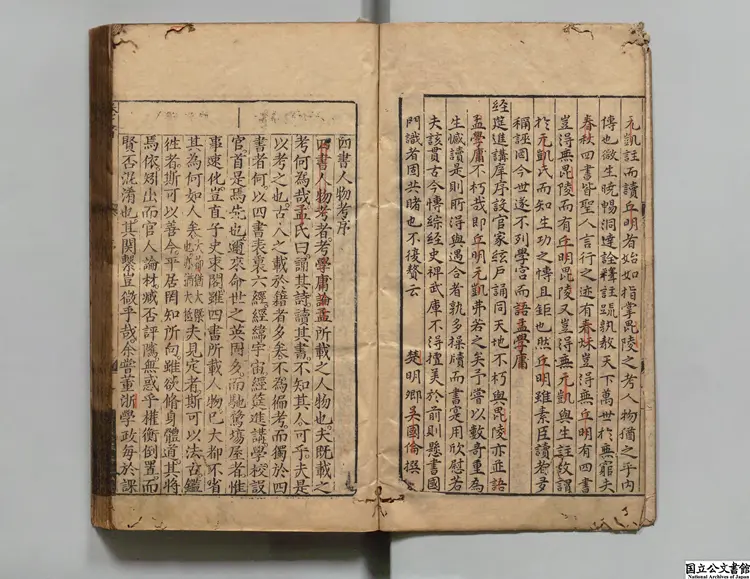 元凱註而讀丘明者始如指掌毗陵之考人物猶之乎内
傳也儆生時暢洞達詮釋註疏執教天下萬世於無窮夫
春秋四書皆聖人言行之迹有春秋豈得無丘明有四書
豈得無毘陵而有丘明毘陵又豈得無元凱與生註故謂
於元凱氏而知生功之慱且鉅也然丘明雖素臣讀者多
稱誣罔今世遂不列學宮而語孟學庸
經筵進講庠序設官家絃戶誦同天地不朽與毘陵亦並語
孟學庸不朽哉即丘明元凱弗若之矣予嘗以數奇重為
生慽讀是則所得與遇合者孰多操牘而書寔用欣慰若
夫該貫古今慱綜經史裨武庫不得擅美於前則懸書國
門識者固共睹也不復贅云
楚明卿吳國倫撰
四書人物考序
四書人物考者考學庸論孟所載之人物也夫既載之
考何為哉孟氏曰誦其詩讀其書不知其人可乎夫是
以考之也古人之載於籍者多矣不為徧考而獨於四
書者何以四書表裏六經經緯宇宙經筵進講學校設
官首是焉先也邇來命世之英固多而馳騖場屋者惟
事速化豈直子史束閣雖四書所載人物已大都不省
其為何如人矣大節猶大槩也亦猶大法夫見定者斯可以法古鑑
徃者斯可以善今平居罔知所向雖欲脩身體道其將
焉依矧出而官人論材臧否評隲無惑乎權衡倒置而
賢否混淆也其関繫豈微乎哉余嘗董浙學政每於課
国立公文書館
National Archives of Japan